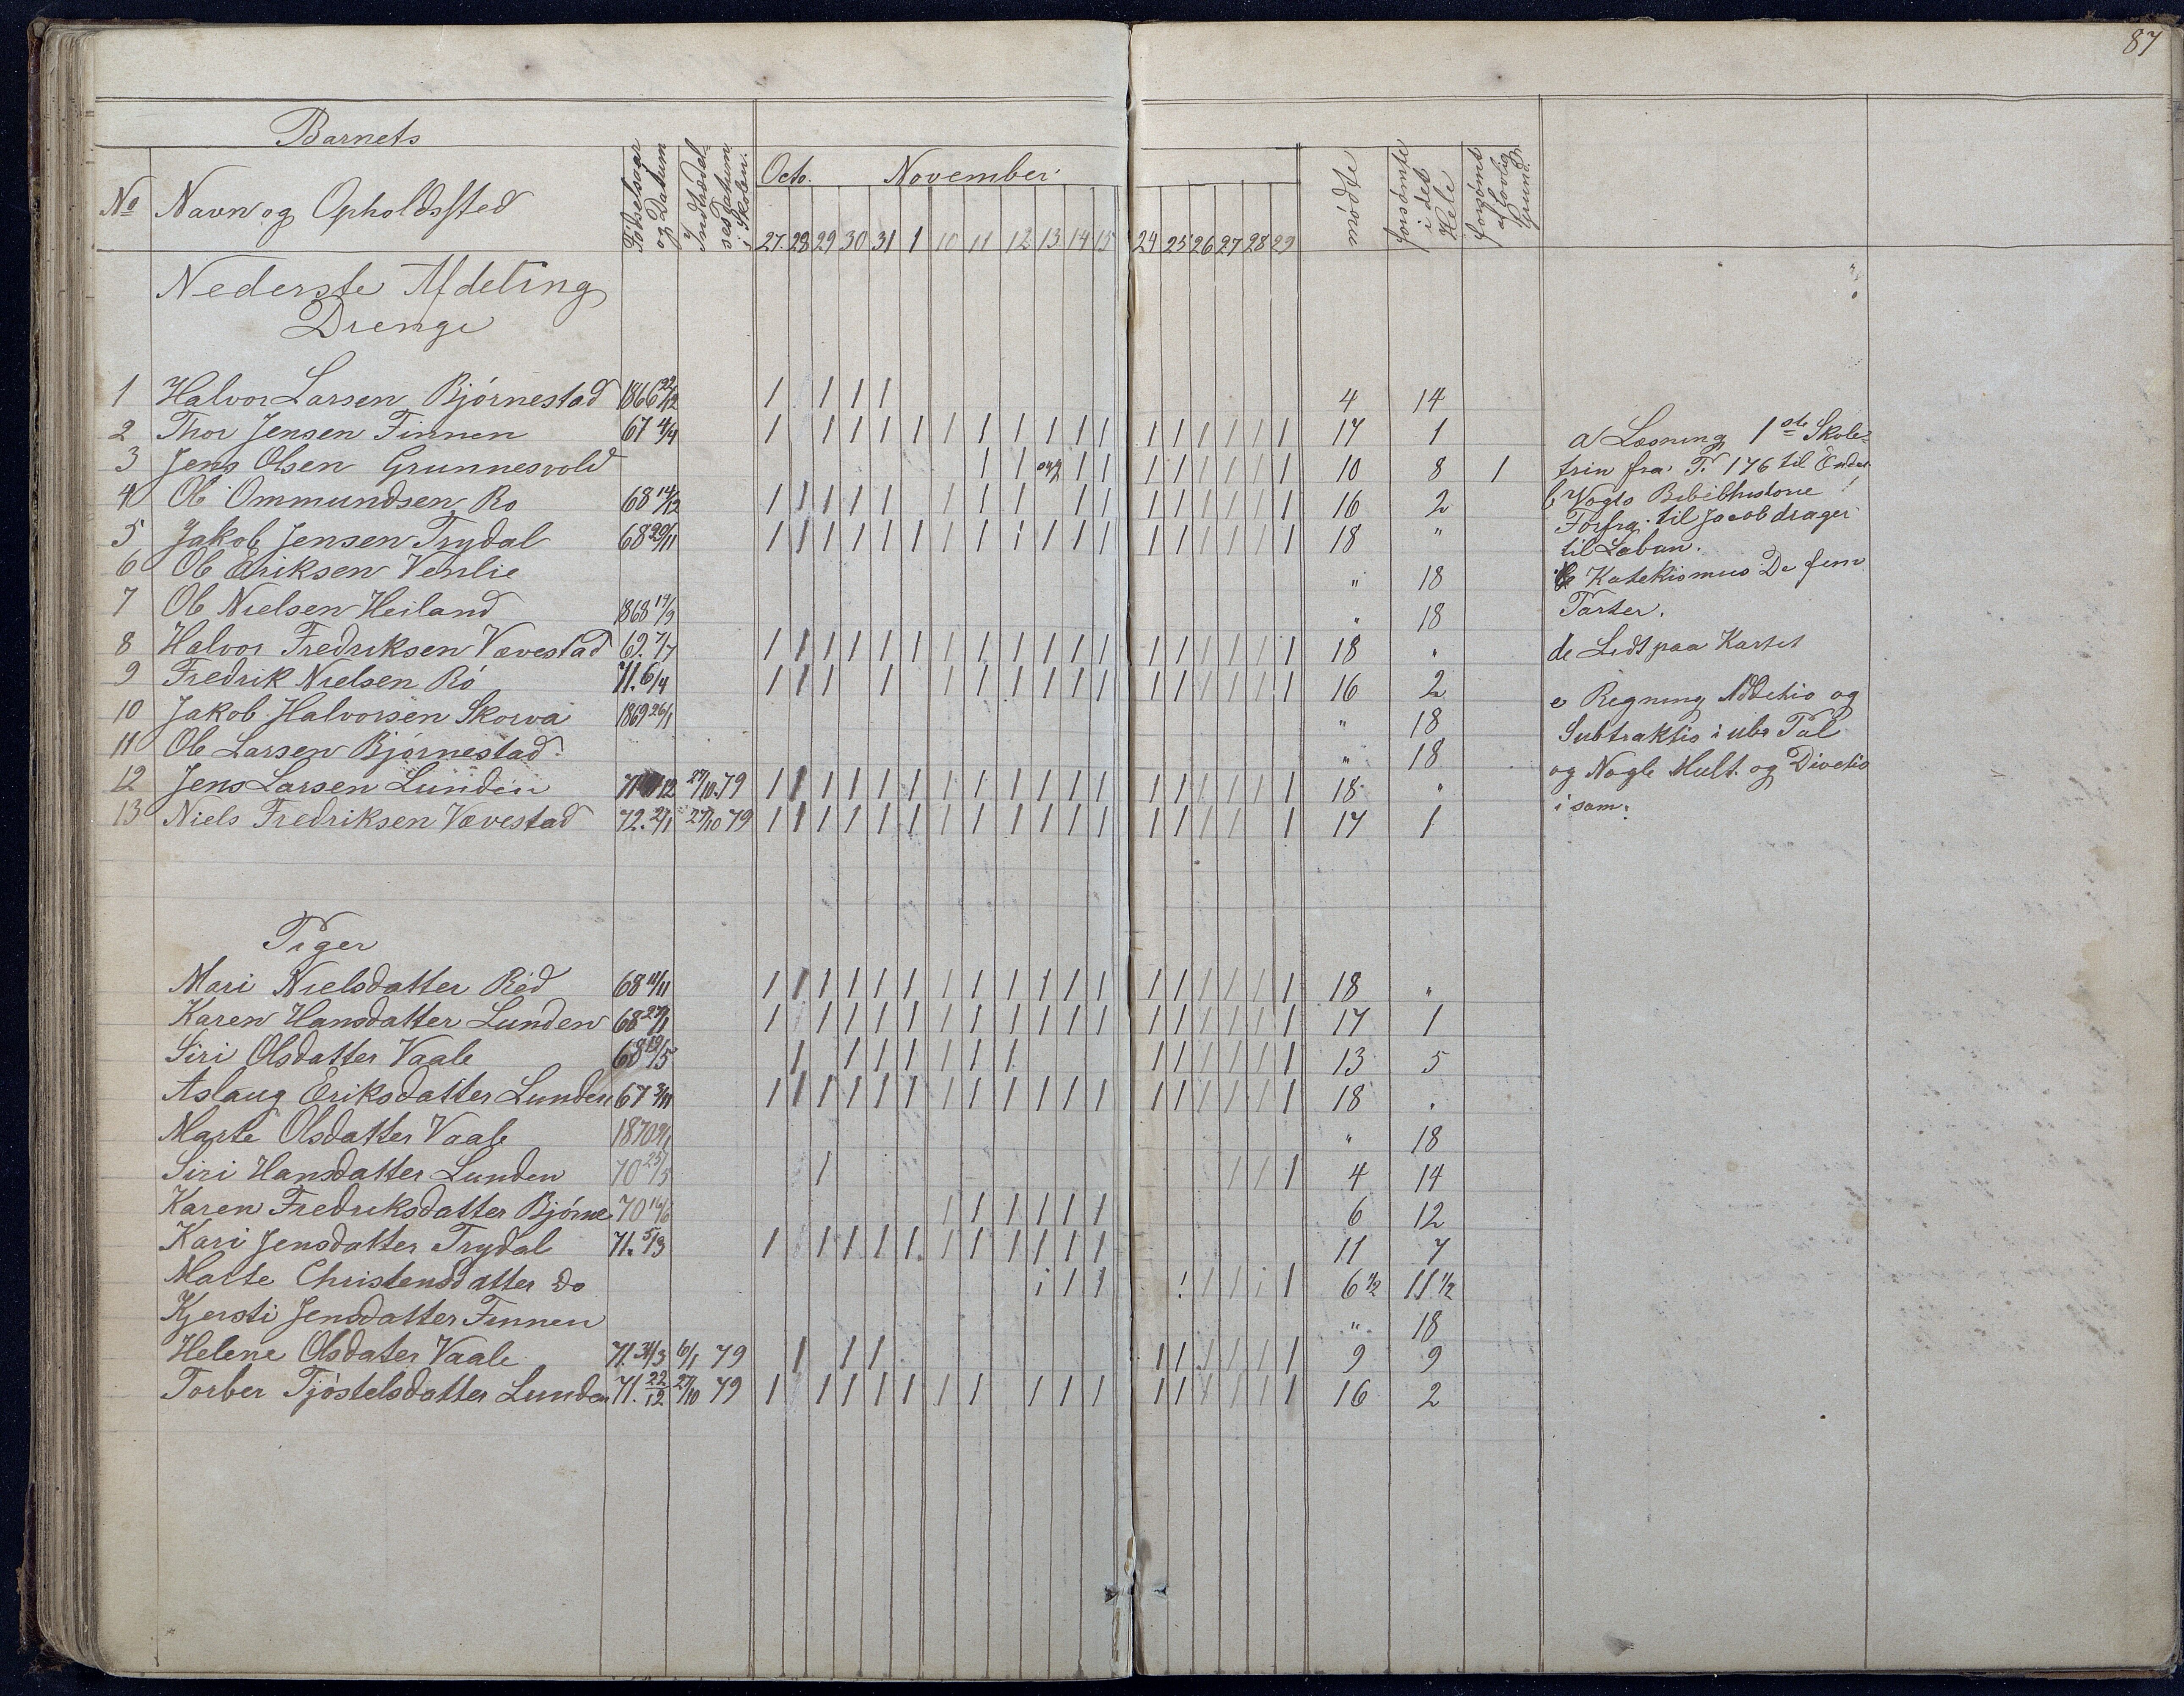 87
Barnets
No Navn og Opholdssted Födselsaar og Datum Indtrædelsesdatum i Skolen. Octo. November mødte forsømte i det Hele forsømt af lovlig Grund.
27. 28 29 30 31 1 10 11 12 13 14 15 24 25 26 27 28 29
Nederste Afdeling
Drenge
1 Halvor Larsen Bjørnestad 1866 22/12 1 1 1 1 4 14
2 Thor Jensen Finnen 67 4/4 1 1 1 1 1 1 1 1 1 1 1 1 1 1 1 1 1 17 1
3 Jens Olsen Grunnesvold 1 1 syg 1 1 1 1 1 1 1 1 10 8 1
4 Ole Ommundsen Ro 68 14/12 1 1 1 1 1 1 1 1 1 1 1 1 1 1 1 1 16 2
5 Jakob Jensen Trydal 68 29/11 1 1 1 1 1 1 1 1 1 1 1 1 1 1 1 1 1 1 18 "
6 Ole Eriksen Venlie " 18
7 Ole Nielsen Heiland 1868 19/9 " 18
8 Halvor Fredriksen Vævestad 69. 7/7 1 1 1 1 1 1 1 1 1 1 1 1 1 1 1 1 1 1 18 "
9 Fredrik Nielsen Rö 71. 6/4 1 1 1 1 1 1 1 1 1 1 1 1 1 1 1 1 16 2
10 Jakob Halvorsen Skorva 1869 26/1 " 18
11 Ole Larsen Bjørnestad " 18
12 Jens Larsen Lunden 71 12 27/10. 79 1 1 1 1 1 1 1 1 1 1 1 1 1 1 1 1 1 1 18 "
13 Niels Fredriksen Vævestad 72. 2/1 27/10 79 1 1 1 1 1 1 1 1 1 1 1 1 1 1 1 1 1 17 1
a Læsning 1ste Skole-
trin fra P. 176 til Enden
b Vogts Bibelhistorie
Forfra til Jacob drager
til Laban.
c Katekismus De fem
Parter.
d Lidt paa Kartet
e Regning Addetio og
Subtraktio i ube Tal
og Nogle Mult. og Divetio
i sam:
Piger
Mari Nielsdatter Röd 68 11/11 1 1 1 1 1 1 1 1 1 1 1 1 1 1 1 1 1 1 18 "
Karen Hansdatter Lunden 68 27/1 1 1 1 1 1 1 1 1 1 1 1 1 1 1 1 1 1 17 1
Siri Olsdatter Vaale 68 19/5 1 1 1 1 1 1 1 1 1 1 1 1 1 13 5
Aslaug Eriksdatter Lunden 67 3/11 1 1 1 1 1 1 1 1 1 1 1 1 1 1 1 1 1 1 18 "
Marte Olsdatter Vaale 1870 9/1 " 18
Siri Hansdatter Lunden 70 25/5 1 1 1 1 4 14
Karen Fredriksdatter Bjørne 70 16/6 1 1 1 1 1 1 6 12
Kari Jensdatter Trydal 71. 5/3 1 1 1 1 1 1 1 1 1 1 1 11 7
Marte Christensdatter do 1 1 1 1 1 1 1 1 6 1/2 11 1/2
Kjersti Jensdatter Finnen " 18
Helene Olsdater Vaale 71. 31/3 6/1 79 1 1 1 1 1 1 1 1 1 9 9
Torber Tjöstelsdatter Lunden 71. 22/12 27/10 79 1 1 1 1 1 1 1 1 1 1 1 1 1 1 1 1 16 2